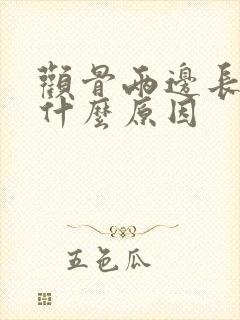 顴骨兩邊長
什麼原因
五色瓜